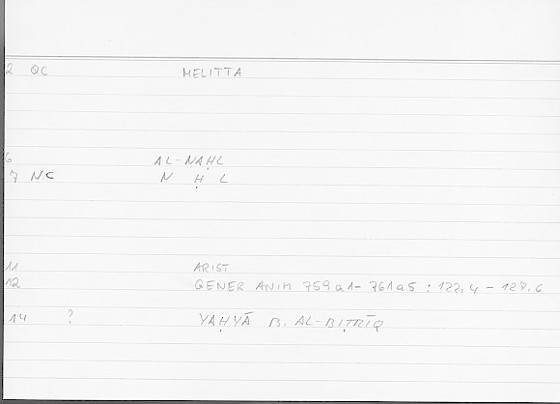 2 QC MELITTA
6 AL-NAḤL
7 NC N Ḥ L
11 ARIST
12 GENER ANIM 759a1-761a5 : 122.4 - 128.6
14 ? YAḤYĀ B. AL-BIṬRĪQ